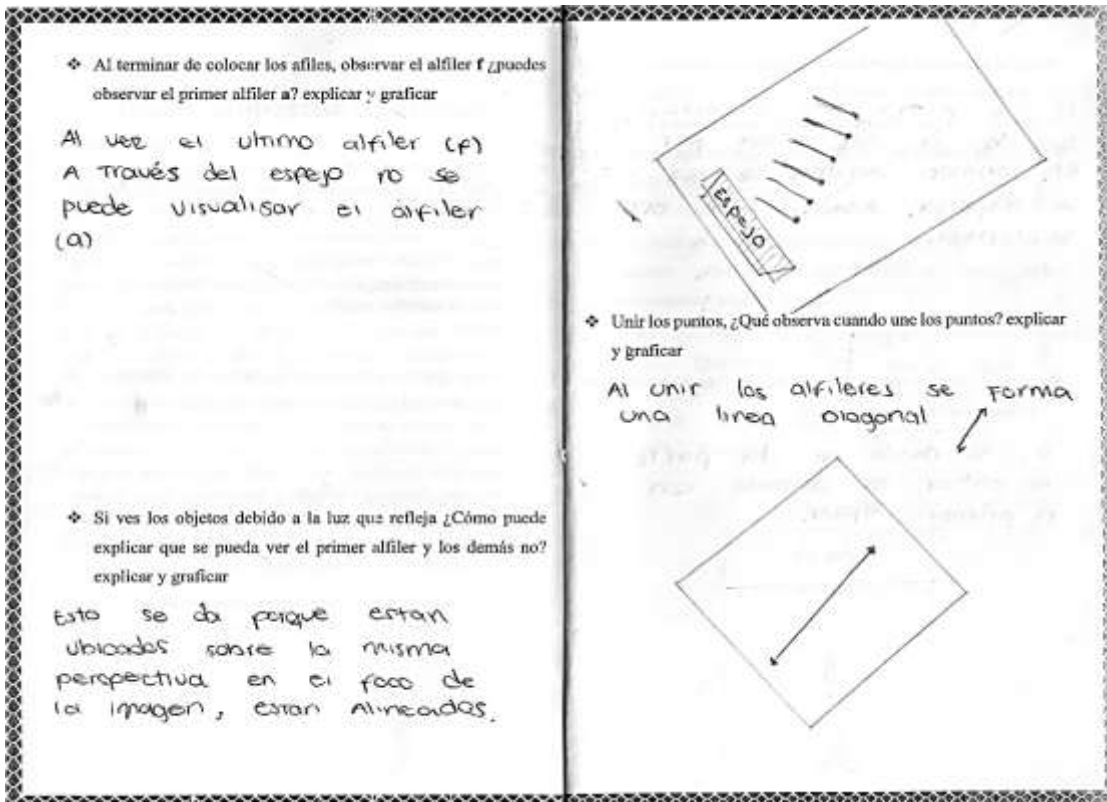 ❖ Al terminar de colocar los afiles, observar el alfiler f ¿puedes
observar el primer alfiler a? explicar y graficar
Al ver el ultimo alfiler (f)
A Través del espejo no se
puede visualisar el alfiler
(a)
❖ Si ves los objetos debido a la luz que refleja ¿Cómo puede
explicar que se pueda ver el primer alfiler y los demás no?
explicar y graficar
Esto se da porque estan
ubicados sobre la misma
perspectiva en el foco de
la imagen, estan Alineados.
Espejo
❖ Unir los puntos, ¿Qué observa cuando une los puntos? explicar
y graficar
Al unir los alfileres se Forma
una linea diagonal